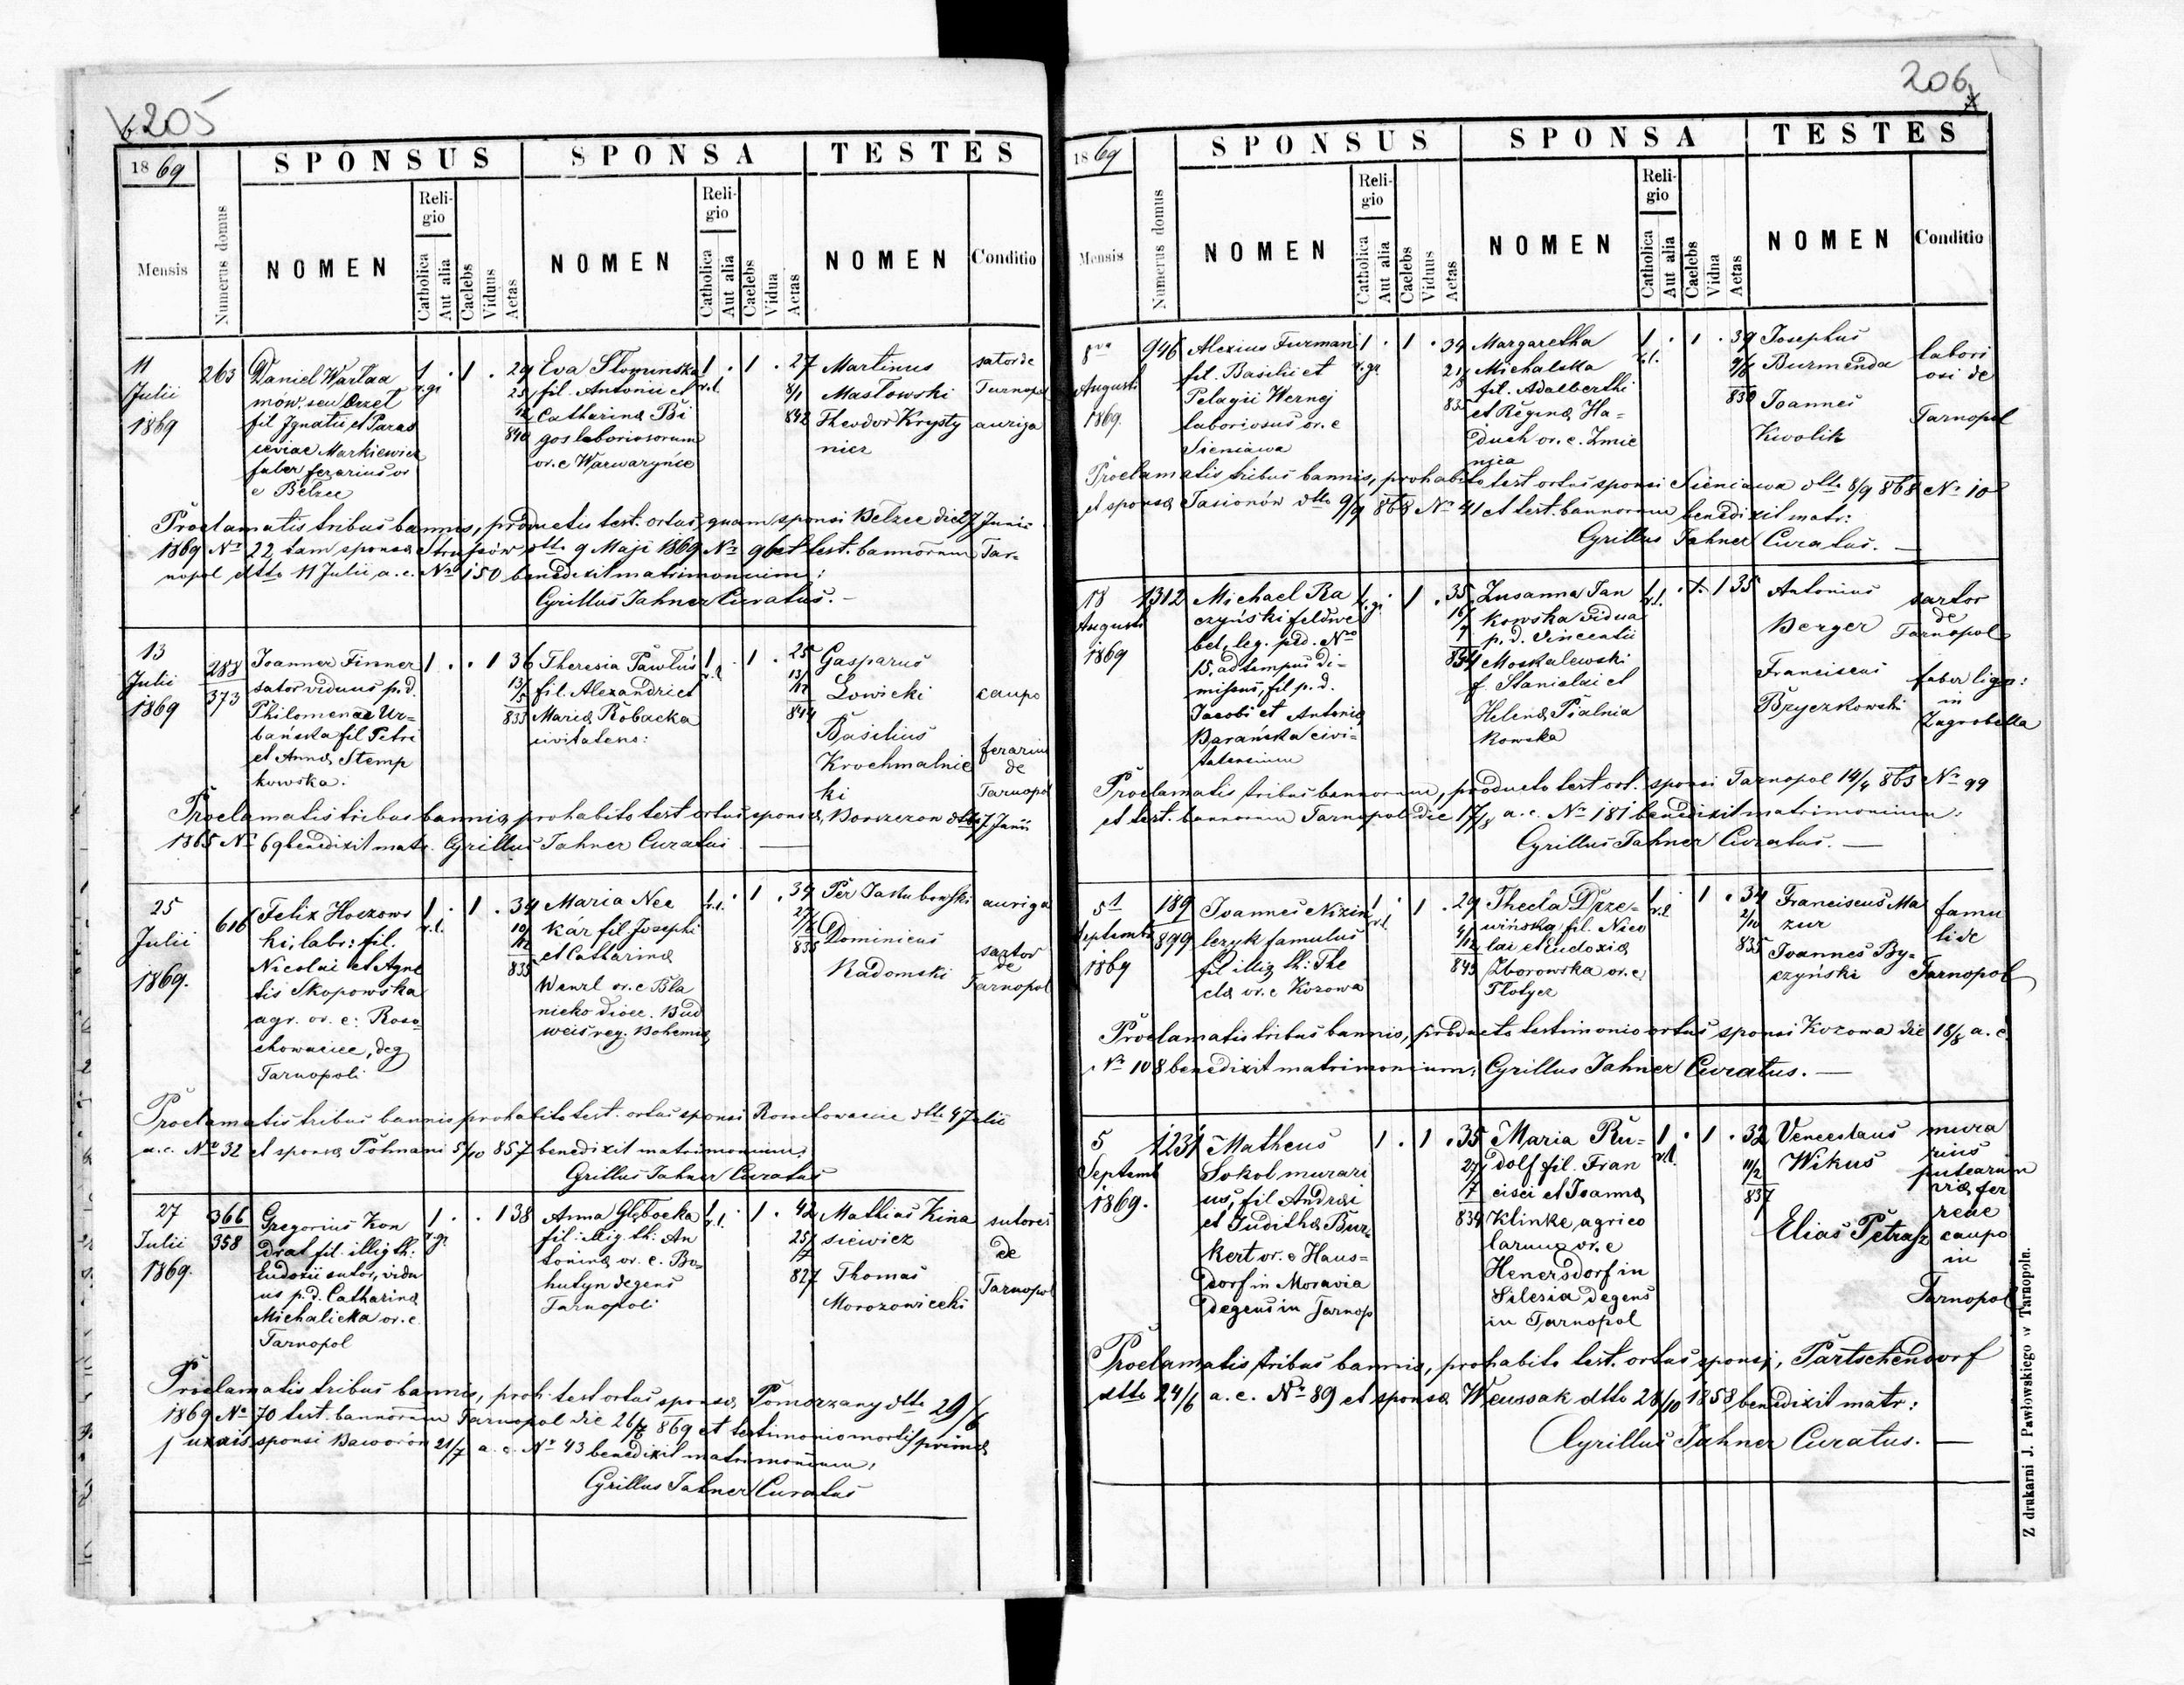 205
1869
SPONSUS
SPONSA
TESTES
Mensis
Numerus domus
NOMEN
Religio
Catholica
Aut alia
Caelebs
Viduus
Aetas
NOMEN
Religio
Catholica
Aut alia
Caelebs
Vidua
Aetas
NOMEN
Conditio
11
Julii
1869
263
Daniel Warlaa
mów, seu Orzel
fil Ignatii et Paras
ceviae Markiewicz
faber ferarius or
e Bełzec
1 . 1 . 29
r.gr
25/12
840
Eva Słomińska
fil. Antonii et
Catharinæ Bi
gos laboriosorum
or. e Warwaryńce
1 . 1 . 27
r.l.
8/1
842
Martinus
Masłowski
Theodor Krysty
nicz
sator de
Tarnopol
auriga
Proclamatis tribus bannis, productis test. ortus, quam sponsi Bełzec die 27 Junii
1869 Nr 22, tam sponsæ Strussów dtto 9 Maji 1869 Nr 96 et test. bannorum Tar-
nopol dtto 11 Julii a.c. Nr 150 benedixit matrimonium:
Cyrillus Jahner Curatus. —
13
Julii
1869
288
373
Joannes Finner
sator viduus p.d.
Philomenae Ur=
bańska fil Petri
et Annæ Stemp
kowska.
1 . . 1 36
13/5
833
Theresia Pawluś
fil. Alexandri et
Mariæ Robacka
civitatens:
1 . 1 . 25
r.l
13/12
844
Gasparus
Łowicki
Basilius
Krochmalnic
ki
caupo
ferarius
de
Tarnopol
Proclamatis tribus bannis, prohabito test ortus sponsæ, Borszczow dtto 7 Junii
1865 Nr 69 benedixit matr. Cyrillus Jahner Curatus —
25
Julii
1869.
616
Felix Hoszows
ki, labr: fil.
Nicolai et Agne
tis Skopowska
agr. or. e: Roso
chowaciec, deg
Tarnopoli
1 . 1 . 34
r.l.
10/12
835
Maria Nec
kár fil Josephi
et Catharinæ
Wenzl or. e Bla
nicko dioec. Bud
weis reg. Bohemiæ
1 . 1 . 34
r.l.
835
Per Jakubowski
Dominicus
Radomski
auriga
sartor
de
Tarnopol
Proclamatis tribus bannis prohabito test. ortus sponsi Rosochowaciec dtto 4 Julii
a.c. Nr 32 et sponsæ Pohnani 5/10 857 benedixit matrimonium:
Cyrillus Jahner Curatus
27
Julii
1869.
366
358
Gregorius Kon
drat fil. illig th:
Eudoxii sutor, vidu
us p.d. Catharinæ
Michalicka or. e.
Tarnopol
1 . . 1 38
r.gr.
Anna Głębocka
fil: illig. th: An
toninæ or. e. Bo=
hutyn degens
Tarnopoli
1 . 1 . 42
r.l.
25/7
827
Mathias Kina
siewicz
Thomas
Morozowiecki
sutores
de
Tarnopol
Proclamatis tribus bannis, proh. test ortus sponsæ Pomorzany dtto 29/6
1869 Nr 70 test. bannorum Tarnopol die 26/7 869 et testimonio mortis primæ
uxoris sponsi Baworów 21/7 a.c. Nr 43 benedixit matrimonium:
Cyrillus Jahner Curatus
206
1869
SPONSUS
SPONSA
TESTES
Mensis
Numerus domus
NOMEN
Religio
Catholica
Aut alia
Caelebs
Viduus
Aetas
NOMEN
Religio
Catholica
Aut alia
Caelebs
Vidua
Aetas
NOMEN
Conditio
8va
Augusti
1869.
946
Alexius Furman
fil. Basilii et
Pelagii Wernej
laboriosus or. e
Sieniawa
1 . 1 . 34
r.gr
Margaretha
Michalska
fil. Adalberthi
et Reginæ Ha=
duch or. e. Zmie
nica
1 . 1 . 39
r.l.
9/6
830
Josephus
Burmenda
Joannes
Kwolik
labori
osi de
Tarnopol
Proclamatis tribus bannis, prohabito test ortus sponsi Sieniawa dtto 8/9 868 Nr 10
et sponsæ Jasionów dtto 9/9 868 Nr 41 et test. bannorum benedixit matr:
Cyrillus Jahner Curatus. —
18
Augusti
1869
1312
Michael Ra
czyński feldwe
bel, leg. ped. Nro
15, ad tempus di=
missus, fil p.d.
Jacobi et Antoniæ
Barańska civi=
tatensium
1 . 1 . 35
r.gr.
16/7
834
Zusanna Jan
kowska vidua
p.d. Vincentii
Moskalewski
f. Stanislai et
Helenæ Pialnia
kowska
1 . . 1 35
r.l.
Antonius
Berger
Franciscus
Bryczkowski
sartor
de
Tarnopol
faber lign:
in
Zagrobella
Proclamatis tribus bannorum, producto test ort. sponsi Tarnopol 14/4 865 Nr 99
et test. bannorum Tarnopol die 17/8 a.c. Nr 181 benedixit matrimonium:
Cyrillus Jahner Curatus. —
5t
Septembr
1869
189
899
Joannes Nizin
leryk famulus
fil illig th: The
clæ or. e Kozowa
1 . 1 . 29
r.l.
Thecla Drze=
wińska fil. Nico
lai et Eudoxiæ
Zborowska or. e
Płotycz
1 . 1 . 34
r.l
2/10
835
Franciscus Ma
zur
Joannes By=
czyński
famu
li de
Tarnopol
Proclamatis tribus bannis, producto testimonio ortus sponsi Kozowa die 18/8 a.c.
Nr 108 benedixit matrimonium: Cyrillus Jahner Curatus. —
5
Septemb
1869.
1231
Matheus
Sokol murari
us, fil Andræi
et Judithæ Bur
kert or. e Haus=
dorf in Moravia
degens in Tarnop
1 . 1 . 35
27/7
834
Maria Ru=
dolf fil. Fran
cisci et Joannæ
Klinke, agrico
larum or. e
Henersdorf in
Silesia degens
in Tarnopol
1 . 1 . 32
r.l.
11/2
837
Venceslaus
Wikus
Elias Petrasz
mura
rius
caupo
in
Tarnopol
Proclamatis tribus bannis, prohabito test. ortus sponsi, Partschendorf
dtto 24/6 a.c. Nr 89 et sponsæ Weussak dtto 28/10 1858 benedixit matr:
Cyrillus Jahner Curatus. —
Z drukarni J. Pawłowskiego w Tarnopolu.